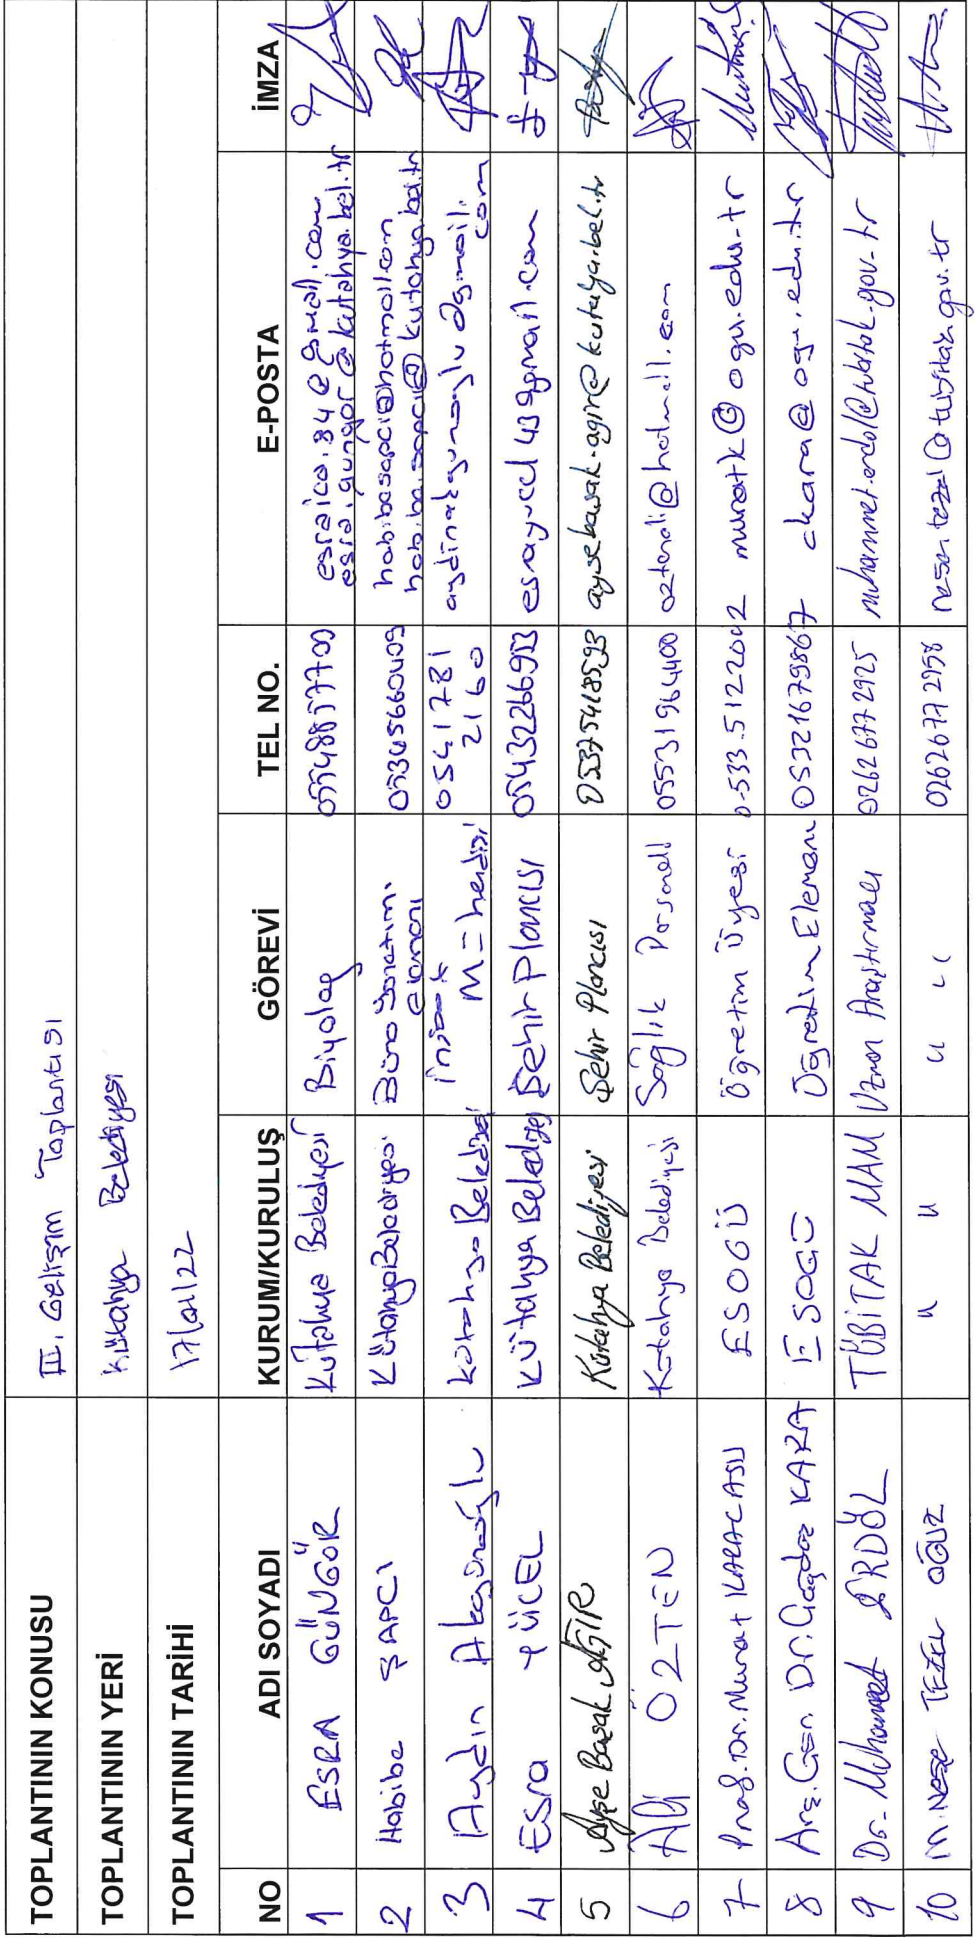 TOPLANTININ KONUSU II. Gelişim Toplantısı
TOPLANTININ YERİ Kütahya Belediyesi
TOPLANTININ TARİHİ
NO ADI SOYADI KURUM/KURULUŞ GÖREVİ TEL NO. E-POSTA İMZA
1 ESRA GÜNGÖR Kütahya Belediyesi Biyolog esraico.84@gmail.com
esra.gungor@kutahya.bel.tr
2 Habibe SAPCI Kütahya Belediyesi Büro Yönetim. 05365660409 habibesapci@hotmail.com
elemanı habibe.sapci@kutahya.bel.tr
3 Aydın Akgünoğlu Kütahya Belediyesi İnşaat 0541 781 aydinakgunoglu@gmail.
Mühendisi 21 60 com
4 Esra YÜCEL Kütahya Belediyesi Şehir Plancısı esrayucel43@gmail.com
5 Ayşe Başak AĞIR Kütahya Belediyesi Şehir Plancısı 05375418593 aysebasak.agir@kutahya.bel.tr
6 Ali ÖZTEN Kütahya Belediyesi Sağlık Personeli 05531964400 oztenali@hotmail.com
7 Prof. Dr. Murat KARACASU ESOGÜ Öğretim Üyesi 0-533.5122042 muratk@ogu.edu.tr
8 Arş. Gör. Dr. Çağdaş KARA ESOGÜ Öğretim Elemanı 05321679867 ckara@ogu.edu.tr
9 Dr. Muhammet ERDÖL TÜBİTAK MAM Uzman Araştırmacı 0262 677 2925 muhammet.erdol@tubitak.gov.tr
10 M. Neşe TEZEL OĞUZ " " " " 0262 677 2958 nesan.tezel@tubitak.gov.tr